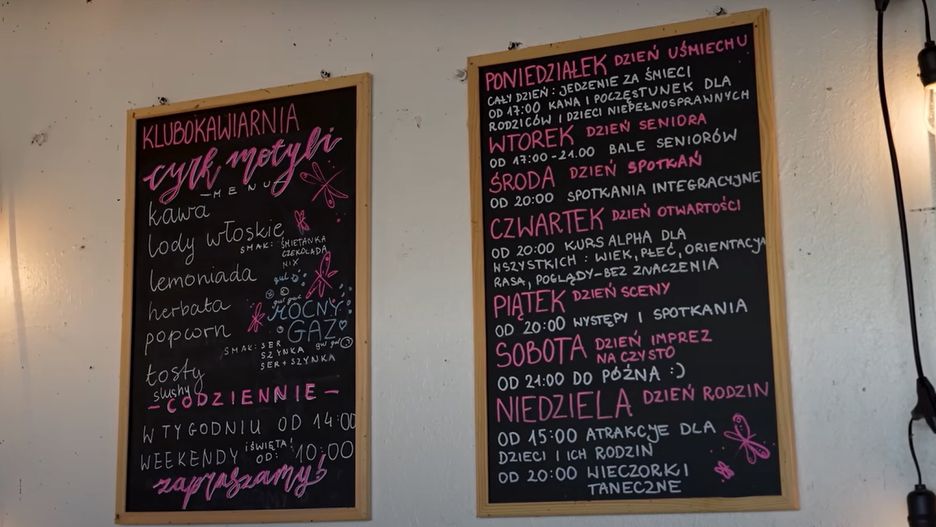 KLUBOKAWIARNIA
cyrk motyli
– M E N U
kawa
lody włoskie
SMAK: ŚMIETANKA
CZEKOLADA
MIX
lemoniada
gul gul
herbata
MOCNY
GAZ
popcorn
SMAK: SER
SZYNKA
SER + SZYNKA
tosty
slushy
– CODZIENNIE –
W TYGODNIU OD 14:00
WEEKENDY I ŚWIĘTA! OD: 10:00
zapraszamy!
PONIEDZIAŁEK DZIEŃ UŚMIECHU
CAŁY DZIEŃ: JEDZENIE ZA ŚMIECI
OD 17:00 KAWA I POCZĘSTUNEK DLA
RODZICÓW I DZIECI NIEPEŁNOSPRAWNYCH
WTOREK DZIEŃ SENIORA
OD 17:00-21.00 BALE SENIORÓW
ŚRODA DZIEŃ SPOTKAŃ
OD 20:00 SPOTKANIA INTEGRACYJNE
CZWARTEK DZIEŃ OTWARTOŚCI
OD 20:00 KURS ALPHA DLA
WSZYSTKICH: WIEK, PŁEĆ, ORIENTACJA
RASA, POGLĄDY-BEZ ZNACZENIA
PIĄTEK DZIEŃ SCENY
OD 20:00 WYSTĘPY I SPOTKANIA
SOBOTA DZIEŃ IMPREZ
NA CZYSTO
OD 21:00 DO PÓŹNA :)
NIEDZIELA DZIEŃ RODZIN
OD 15:00 ATRAKCJE DLA
DZIECI I ICH RODZIN
OD 20:00 WIECZORKI
TANECZNE